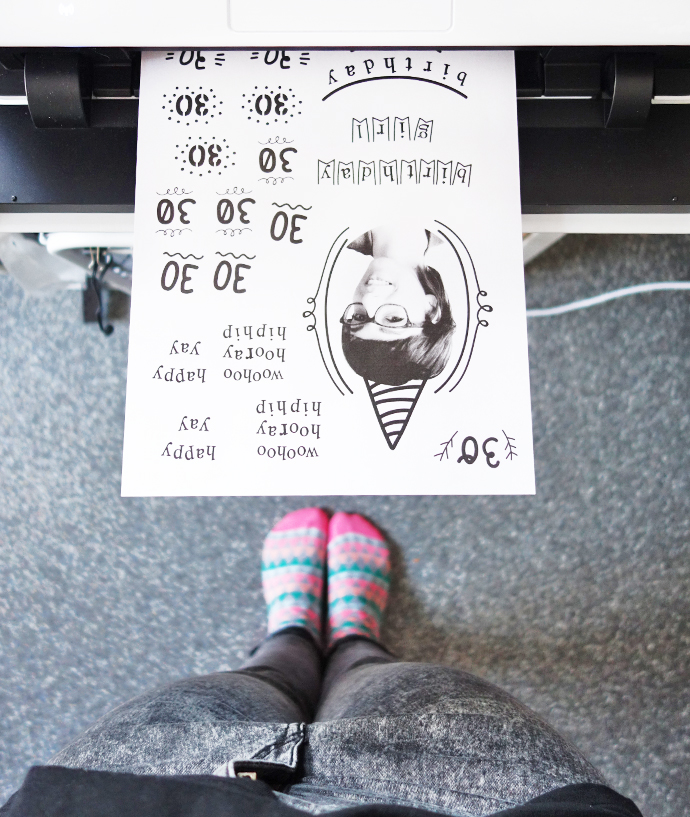 30
woohoo happy
hooray yay
hiphip
woohoo happy
hooray yay
hiphip
30 30
30 30 30
birthday
30 30
girl
30 30
birthday
30 30